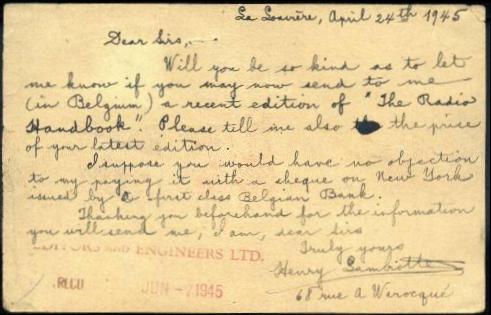 La Louvière, April 24th 1945
Dear Sirs,
Will you be so kind as to let
me know if you may now send to me
(in Belgium) a recent edition of "The Radio
Handbook". Please tell me also the price
of your latest edition.
I suppose you would have no objection
to my paying it with a cheque on New York
issued by a first class Belgian Bank.
Thanking you beforehand for the information
you will send me, I am, dear Sirs
Truly yours
EDITORS AND ENGINEERS LTD.
Henry Lambiotte
REC'D JUN -7 1945
68 rue A Warocqué